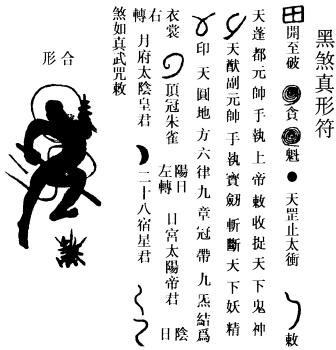 黑煞真形符
開至破 貪 魁 天罡止太衝 敕
天蓬都元帥手執上帝敕收捉天下鬼神
天猷副元帥手執寶劒斬斷天下妖精
印天圓地方六律九章冠帶九炁結爲
衣裳 頂冠朱雀 陽日左轉 日宮太陽帝君 陰日
右轉 月府太陰皇君 二十八宿星君
煞如真武咒敕
合形